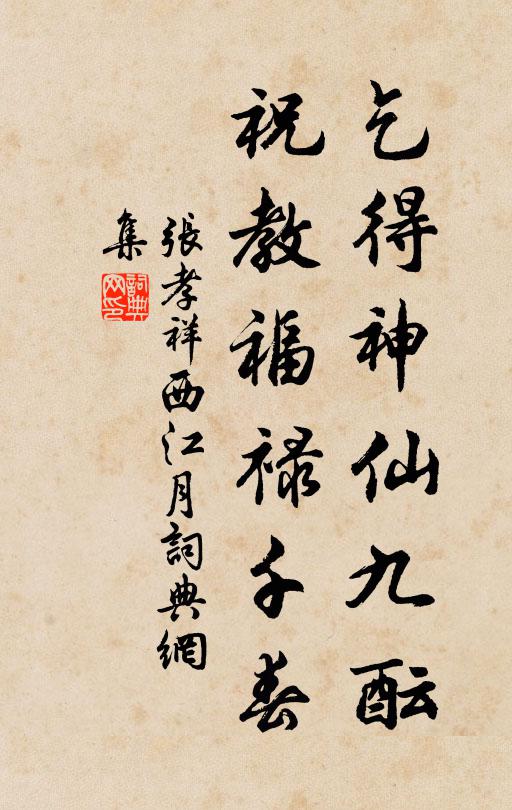 乞得神仙九酝
祝教福禄千春
張孝祥西江月詞典網
集
詞典网印